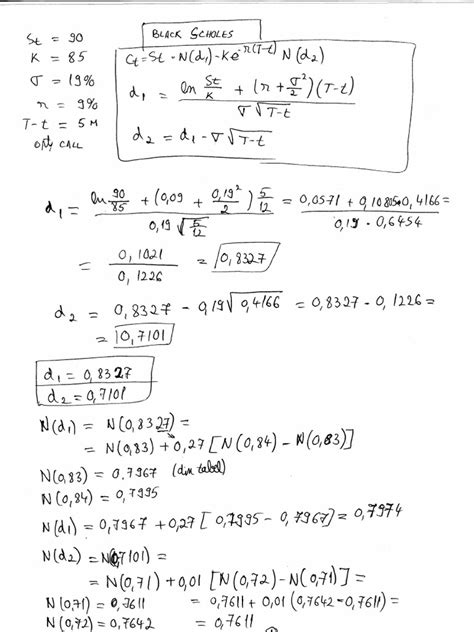 St = 90
K = 85
σ = 19%
r = 9%
T-t = 5 M
only CALL
BLACK SCHOLES
Ct = St · N(d₁) - K e^{-r(T-t)} N(d₂)
d₁ = (ln St/K + (r + σ²/2)(T-t)) / (σ √(T-t))
d₂ = d₁ - σ √(T-t)
d₁ = (ln 90/85 + (0,09 + 0,19²/2) 5/12) / (0,19 √(5/12)) = (0,0571 + 0,10805·0,4166) / (0,19 · 0,6454) =
= 0,1021 / 0,1226 = 0,8327
d₂ = 0,8327 - 0,19 √0,4166 = 0,8327 - 0,1226 =
= 0,7101
d₁ = 0,8327
d₂ = 0,7101
N(d₁) = N(0,8327) =
= N(0,83) + 0,27 [N(0,84) - N(0,83)]
N(0,83) = 0.7967 (din tabel)
N(0,84) = 0,7995
N(d₁) = 0,7967 + 0,27 [0,7995 - 0,7967] = 0,7974
N(d₂) = N(0,7101) =
= N(0,71) + 0,01 [N(0,72) - N(0,71)] =
N(0,71) = 0,7611 = 0,7611 + 0,01 (0,7642 - 0,7611) =
N(0,72) = 0,7642 = 0,7611